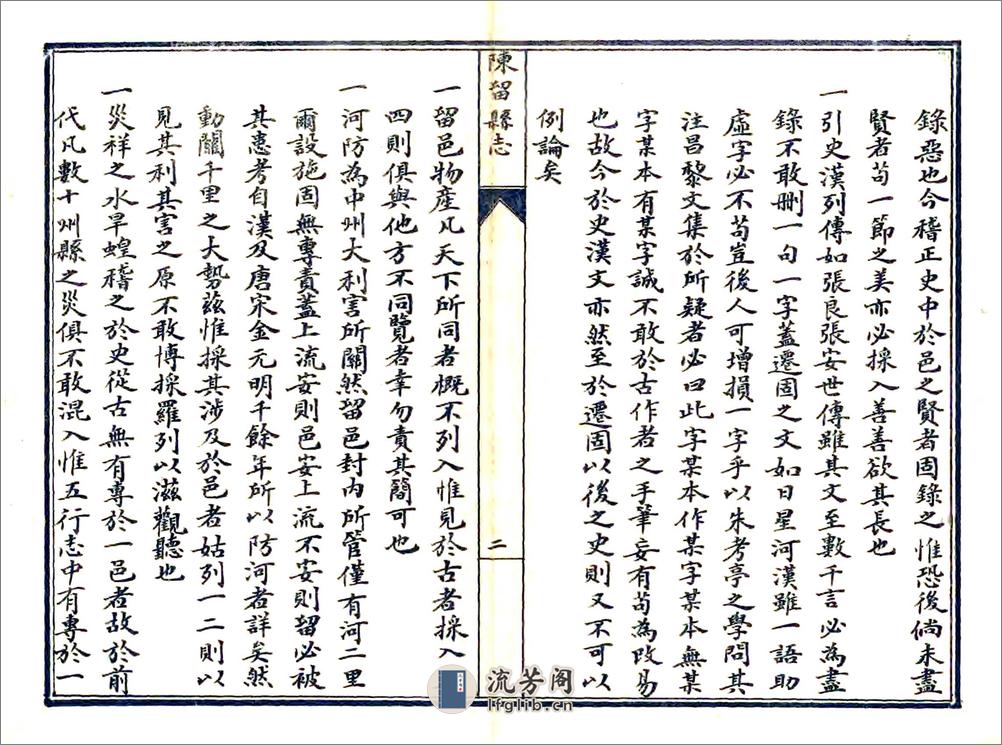 錄惡也今稽正史中於邑之賢者固錄之惟恐後倘未盡
賢者苟一節之美亦必採入善善欲其長也
一引史漢列傳如張良張安世傳雖其文至數千言必為盡
錄不敢删一句一字蓋遷固之文如日星河漢雖一語助
虛字必不苟豈後人可增損一字乎以朱考亭之學問其
注昌黎文集於所疑者必曰此字某本作某字某本無某
字某本有某字誠不敢於古作者之手筆妄有苟為改易
也故今於史漢文亦然至於遷固以後之史則又不可以
例論矣
陳留縣志
二
一留邑物產凡天下所同者概不列入惟見於古者採入
四則俱與他方不同覽者幸勿責其簡可也
一河防為中州大利害所關然留邑封內所管僅有河二里
爾設施固無專責蓋上流安則邑安上流不安則留必被
其患考自漢及唐宋金元明千餘年所以防河者詳矣然
動關千里之大勢茲惟採其涉及於邑者姑列一二則以
見其利其害之原不敢博採羅列以滋觀聽也
一災祥之水旱蝗稽之於史從古無有專於一邑者故於前
代凡數十州縣之災俱不敢混入惟五行志中有專於一
流芳阁
lfglib.cn